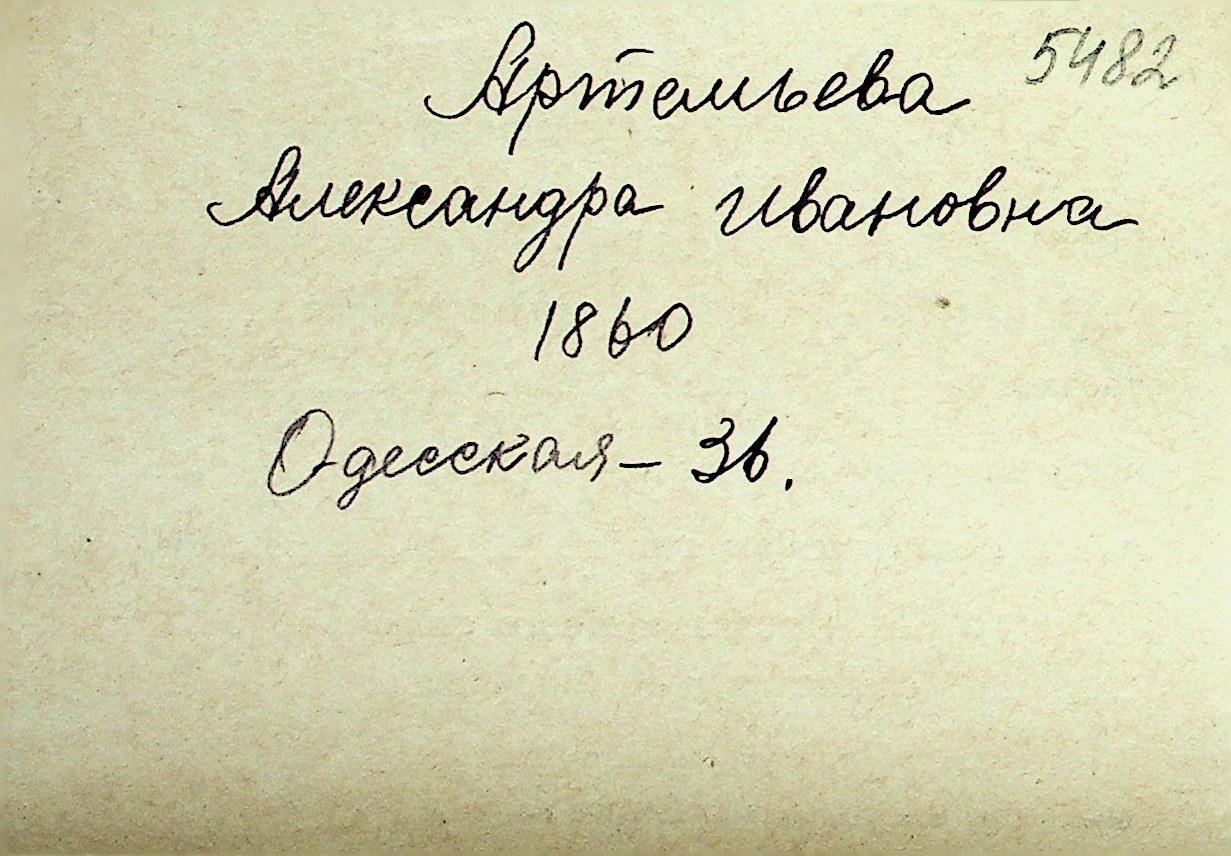 Артемьева 5482
Александра Ивановна
1860
Одесская – 36.